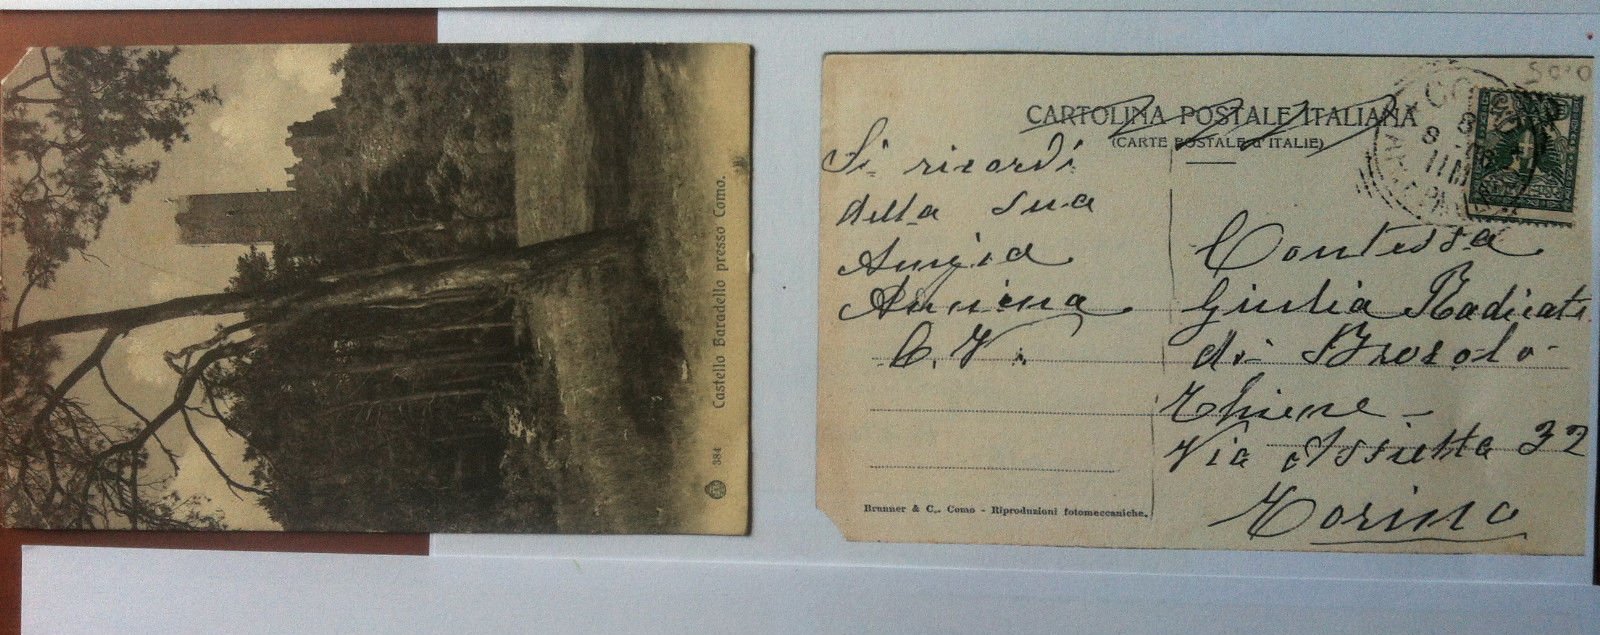 Castello Baradello presso Como.
384
CARTOLINA POSTALE ITALIANA
(CARTE POSTALE d'ITALIE)
Si ricordi
della sua
Amica
Annina
C. V.
Contessa
Giulia Radicati
di Brosolo
Via Assietta 32
Torino
Brunner & C., Como - Riproduzioni fotomeccaniche.
COMO
8
11M